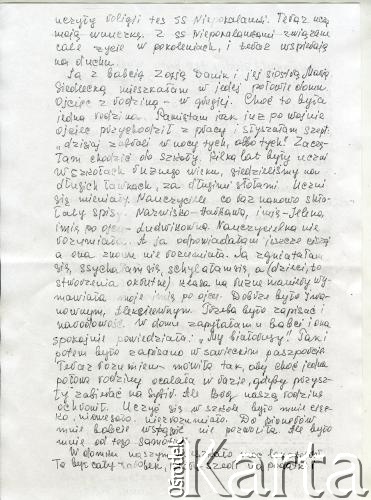 uczyły religii też SS Niepokalanki. Teraz uczą
moją wnuczkę. Z SS Niepokalankami związane
całe życie w pokoleniach, i teraz wspierają
na duchu.
Ja z babcią Zofią Danik i jej siostrą Marią
Siedlecką mieszkałam w jednej połowie domu.
Ojciec z rodziną - w drugiej. Choć to była
jedna rodzina. Pamiętam jak już po wojnie
ojciec przychodził z pracy i słyszałam szept:
„dzisiaj zabrali w nocy tych, albo tych". Zaczę-
łam chodzić do szkoły. Kilka lat były uczni
w szkołach różnego wieku, siedzieliśmy na
długich ławkach, za długimi stołami. Uczni
się mieniały. Nauczyciele co raz nanowo skła-
dały spisy. Nazwisko - , imię - Helena,
imię po ojcu - Ludwikowna. Nauczycielka nie
rozumiała. A ja odpowiadałam jeszcze ciszej
a ona znowu nie rozumiała. Ja zginałam
się, ssychałam się, schylałam się, a (dzieci, to
stworzenia okrutne) klasa na różne manery wy-
mawiała moje imię po ojcu. Dobrze było Iwa-
nownym, Aleksiejewnym. Trzeba było zapisać i
narodowość. W domu zapytałam u babci i ona
spokojnie powiedziała: „My białorusy". Tak i
potem było zapisano w sawieckim paszporcie.
Teraz rozumiem mówiła tak, aby choć jedna
połowa rodziny ocalała w razie, gdyby przysz-
ły zabierać na Sybir. Ale Bóg naszą rodzinę
ochronił. Uczyć się w szkole było mnie cięż-
ko, niewesoło. niezrozumiało. Do pionerów
mnie babcie wstąpić nie pozwoliła. Ale było
mnie od tego samotnie.
W domu naszym
To był cały
ośrodek
KARTA